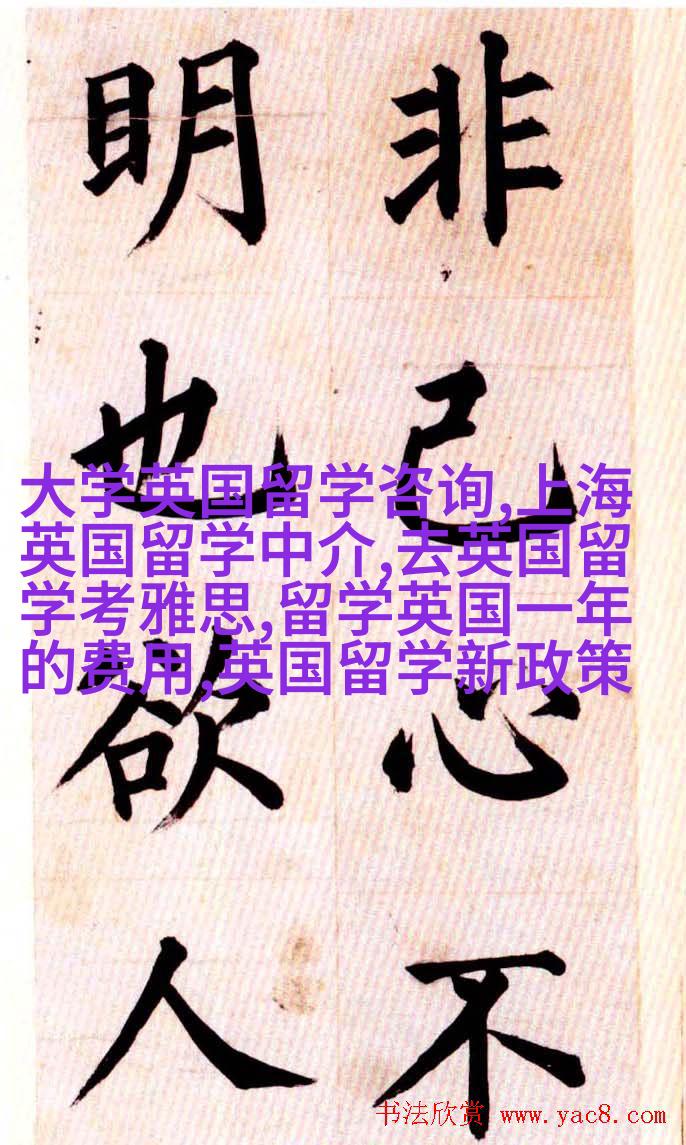 非己心不
明也欲人
大学英国留学咨询,上海
英国留学中介,去英国留
学考雅思,留学英国一年
的费用,英国留学新政策
书法欣赏 www.yac8.com